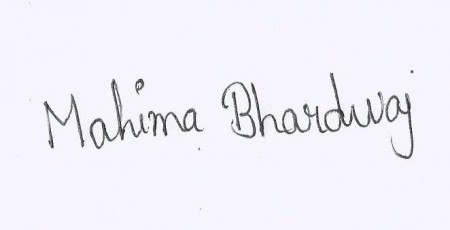 Mahima Bhardwaj